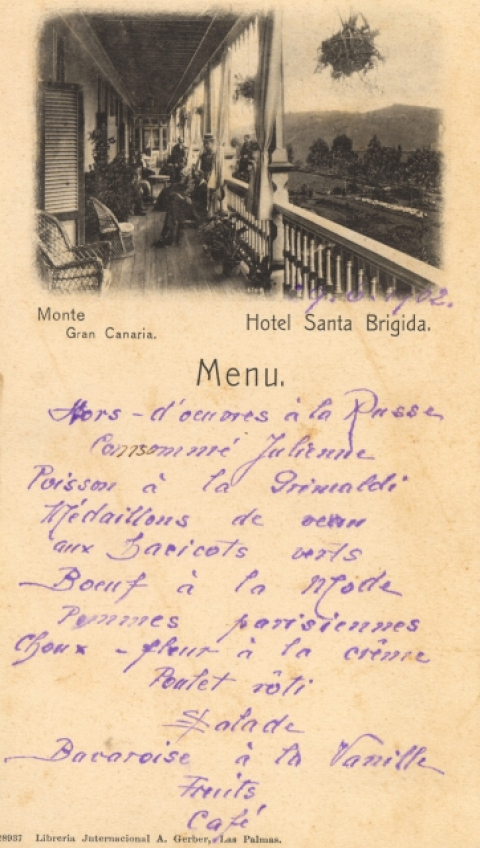 1902.
Monte
Gran Canaria.
Hotel Santa Brigida.
Menu.
Hors-d'oeuvres à la Russe
Consommé Julienne
Poisson à la Grimaldi
Médaillons de veau
aux haricots verts
Boeuf à la Mode
Pommes parisiennes
Choux-fleur à la crême
Poulet rôti
Salade
Bavaroise à la Vanille
Fruits
Café
28937 Libreria Jnternacional A. Gerber, Las Palmas.